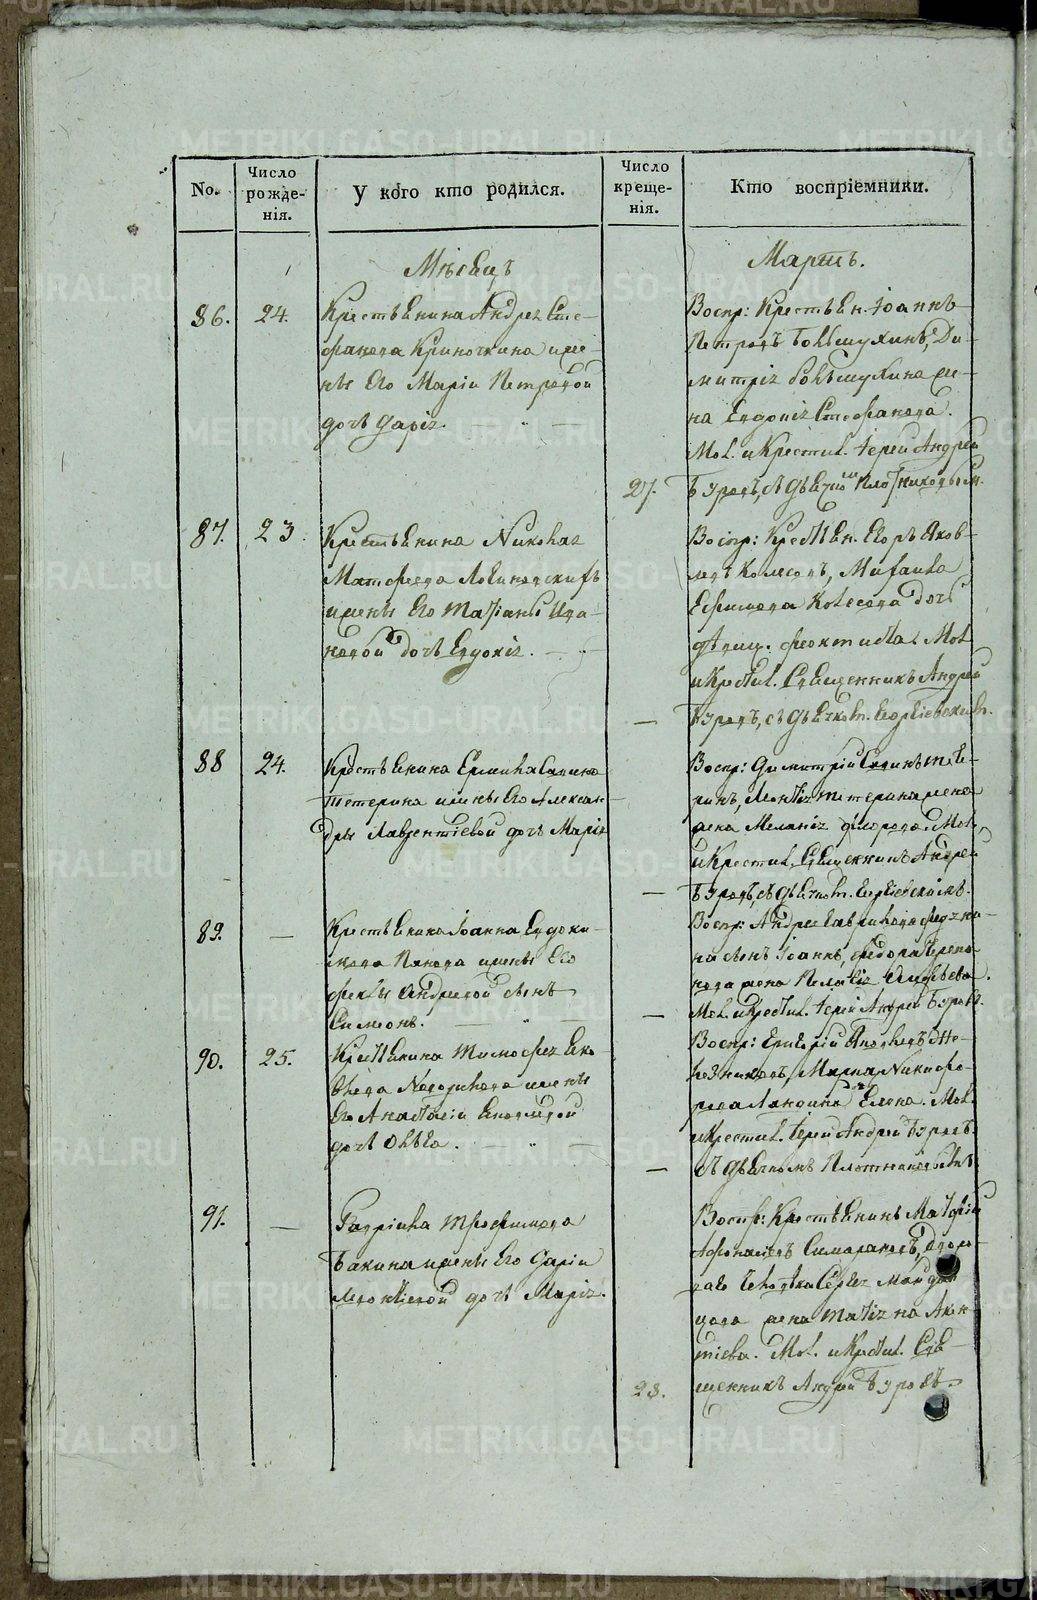 No.
Число
рожде-
нія.
У кого кто родился.
Число
креще-
нія.
Кто воспріемники.
Мѣсяцъ
Мартъ.
86.
24.
Крестьянина Андрея Сте-
фанова Криночкина жѣ-
ны Его Маріи Петровой
дочь Дарія.
27.
Воспр: Крестьян. Іоаннъ
Петровъ Большухинъ, Ди-
митрія Большухина же-
на Евдокія Стефанова.
Мол. и Крестил. Іерей Андрей
Буровъ, съ дьячкомъ Плотниковым.
87.
23.
Крестьянина Николая
Матфеева Ловиновскихъ
жены Его Татіаны Ива-
новой дочь Евдокія.
—
Воспр: Крестьян. Егоръ Яков-
левъ Колесовъ, Михаила
Ефимова Колесова дочь
дѣвиц. Феоктиста. Мол.
и Крестил. Священникъ Андрей
Буровъ, съ дьячком. Георгіевским.
88
24.
Крестьянина Ермила Савина
Тетерина жены Его Алексан-
дры Лаврентіевой дочь Марія
—
Воспр: Димитрій Савинъ Тете-
ринъ, Леонтія Тетерина
жена Меланія Федорова. Мол.
и Крестил. Священникъ Андрей
Буровъ, съ дьячком. Георгіевскимъ.
89.
—
Крестьянина Іоанна Евдоки-
мова Панова жены Его
Феклы Андреевой сынъ
Симеонъ.
—
Воспр: Андрея Гаврилова
на сынъ Іоаннъ, Федора
нова жена Пелагія
Мол. и Крестил. Іерей Андрей Буровъ.
90.
25.
Крестьянина Тимофея Яко-
влева жены
Его Анастасіи
дочь Ольга.
—
Воспр: Григорій Яковлевъ
Марка Никифо-
рова Елена. Мол.
и Крестил. Іерей Андрей Буровъ.
съ дьячкомъ Плотниковымъ.
91.
—
Гавріила Трофимова
Бакина жены Его Даріи
Леонтіевой дочь Марія.
28.
Воспр: Крестьянинъ Матфій
Афонасіевъ дворо-
ваго человѣка Сергея
жена Татіана Акен-
тіева. Мол. и Крестил. Свя-
щенникъ Андрей Буровъ.
METRIKI.GASO-URAL.RU